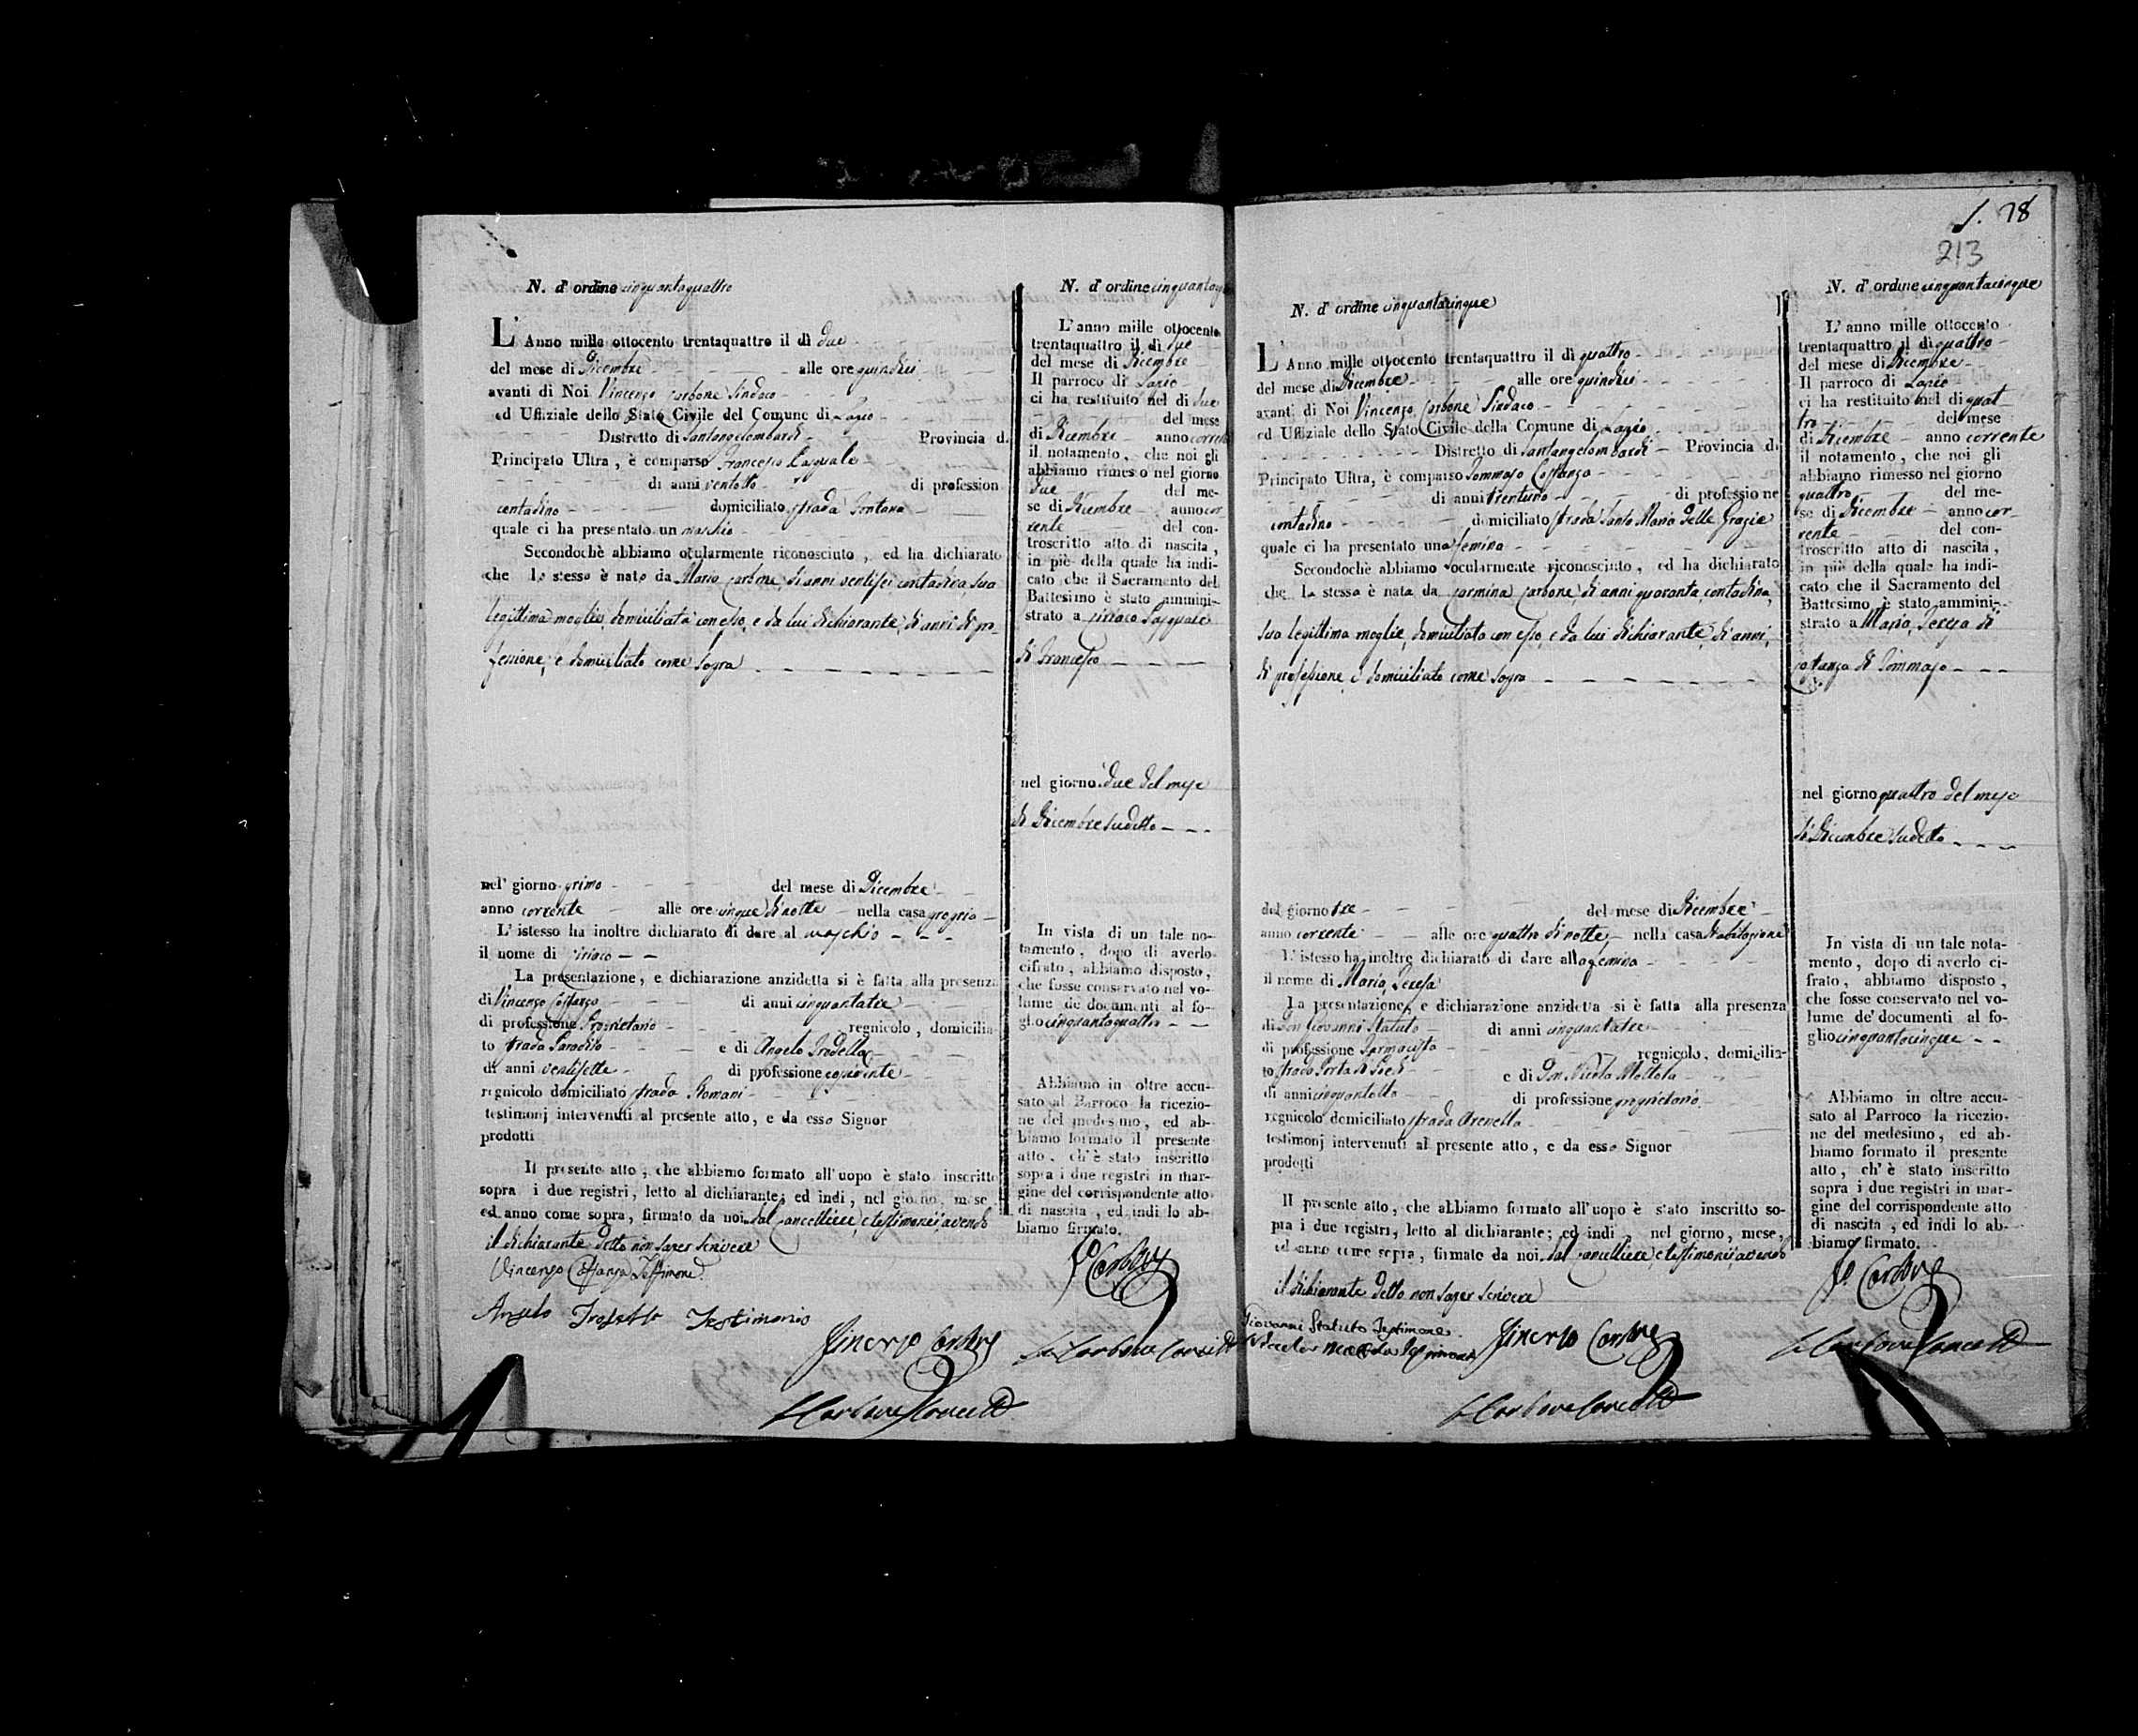 N. d' ordine cinquantaquattro
L' Anno mille ottocento trentaquattro il dì due
del mese di Dicembre alle ore quindici
avanti di Noi Vincenzo Carbone Sindaco
ed Uffiziale dello Stato Civile del Comune di Lapio
Distretto di Santangelombardi Provincia d.
Principato Ultra, è comparso Francesco Pasquale
di anni ventotto di profession
contadino domiciliato strada Fontana
quale ci ha presentato un maschio
Secondochè abbiamo ocularmente riconosciuto, ed ha dichiarato
che lo stesso è nato da Maria Carbone, di anni ventisei contadina, sua
legittima moglie, domiciliata con esso, e da lui dichiarante, di anni di pro-
fessione, e domiciliato come sopra
nel giorno primo del mese di Dicembre
anno corrente alle ore cinque di notte nella casa propria
L' istesso ha inoltre dichiarato di dare al maschio
il nome di Ciriaco
La presentazione, e dichiarazione anzidetta si è fatta alla presenza
di Vincenzo Costanzo di anni cinquantatre
di professione Proprietario regnicolo, domicilia-
to strada Paradiso e di Angelo
di anni ventisette di professione
regnicolo domiciliato strada Romani
testimonj intervenuti al presente atto, e da esso Signor
prodotti
Il presente atto, che abbiamo formato all' uopo è stato inscritto
sopra i due registri, letto al dichiarante; ed indi, nel giorno, mese
ed anno come sopra, firmato da noi, dal Cancelliere, e testimonii, avendo
il dichiarante detto non saper scrivere
Vincenzo Costanza Testimone
Angelo Testimonio
Vincenzo Carbone
Carbone Cancell
N. d' ordine cinquantaqu
L' anno mille ottocento
trentaquattro il dì due
del mese di Dicembre
Il parroco di Lapio
ci ha restituito nel dì due
del mese
di Dicembre anno corrente
il notamento, che noi gli
abbiamo rimesso nel giorno
due del me-
se di Dicembre anno cor-
rente del con-
troscritto atto di nascita,
in piè della quale ha indi-
cato che il Sacramento del
Battesimo è stato ammini-
strato a Ciriaco Pasquale
di Francesco
nel giorno due del mese
di Dicembre sudetto
In vista di un tale no-
tamento, dopo di averlo
cifrato, abbiamo disposto,
che fosse conservato nel vo-
lume de documenti al fo-
glio cinquantaquattro
Abbiamo in oltre accu-
sato al Parroco la ricezio-
ne del medesimo, ed ab-
biamo formato il presente
atto, ch' è stato inscritto
sopra i due registri in mar-
gine del corrispondente atto
di nascita, ed indi lo ab-
biamo firmato.
Carbone
Carbone Cancell
78
213
N. d' ordine cinquantacinque
L' Anno mille ottocento trentaquattro il dì quattro
del mese di Dicembre alle ore quindici
avanti di Noi Vincenzo Carbone Sindaco
ed Uffiziale dello Stato Civile della Comune di Lapio
Distretto di Santangelombardi Provincia di
Principato Ultra, è comparso Tommaso Costanzo
di anni trentuno di professione
contadino domiciliato strada Santa Maria delle Grazie
quale ci ha presentato una femina
Secondochè abbiamo ocularmente riconosciuto, ed ha dichiarato
che la stessa è nata da Carmina Carbone, di anni quaranta, contadina,
sua legittima moglie, domiciliata con esso, e da lui dichiarante, di anni,
di professione, e domiciliato come sopra
del giorno tre del mese di Dicembre
anno corrente alle ore quattro di notte, nella casa d'abitazione
L' istesso ha inoltre dichiarato di dare alla femina
il nome di Maria Teresa
La presentazione, e dichiarazione anzidetta si è fatta alla presenza
di Don Giovanni Statuto di anni cinquantatre
di professione Farmacista regnicolo, domicilia-
to strada e di Don Nicola Mottola
di anni cinquantotto di professione proprietario
regnicolo domiciliato strada Arenella
testimonj intervenuti al presente atto, e da esso Signor
prodotti
Il presente atto, che abbiamo formato all' uopo è stato inscritto so-
pra i due registri, letto al dichiarante; ed indi nel giorno, mese,
ed anno come sopra, firmato da noi, dal Cancelliere, e testimonii, avendo
il dichiarante detto non saper scrivere
Giovanni Statuto Testimone
Testimone
Vincenzo Carbone
Carbone Cancell
N. d' ordine cinquantacinque
L' anno mille ottocento
trentaquattro il dì quattro
del mese di Dicembre
Il parroco di Lapio
ci ha restituito nel dì quat
tro del mese
di Dicembre anno corrente
il notamento, che noi gli
abbiamo rimesso nel giorno
quattro del me-
se di Dicembre anno cor-
rente del con-
troscritto atto di nascita,
in piè della quale ha indi-
cato che il Sacramento del
Battesimo è stato ammini-
strato a Maria Teresa di
Costanza di Tommaso
nel giorno quattro del mese
di Dicembre sudetto
In vista di un tale nota-
mento, dopo di averlo ci-
frato, abbiamo disposto,
che fosse conservato nel vo-
lume de' documenti al fo-
glio cinquantacinque
Abbiamo in oltre accu-
sato al Parroco la ricezio-
ne del medesimo, ed ab-
biamo formato il presente
atto, ch' è stato inscritto
sopra i due registri in mar-
gine del corrispondente atto
di nascita, ed indi lo ab-
biamo firmato.
Carbone
Carbone Cancell